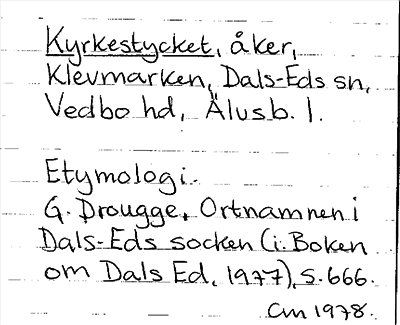 Kyrkestycket, åker,
Klevmarken, Dals-Eds sn,
Vedbo hd, Älvsb. l.
Etymologi.
G. Drougge, Ortnamnen i
Dals-Eds socken (i: Boken
om Dals Ed, 1977), s. 666.
CM 1978.